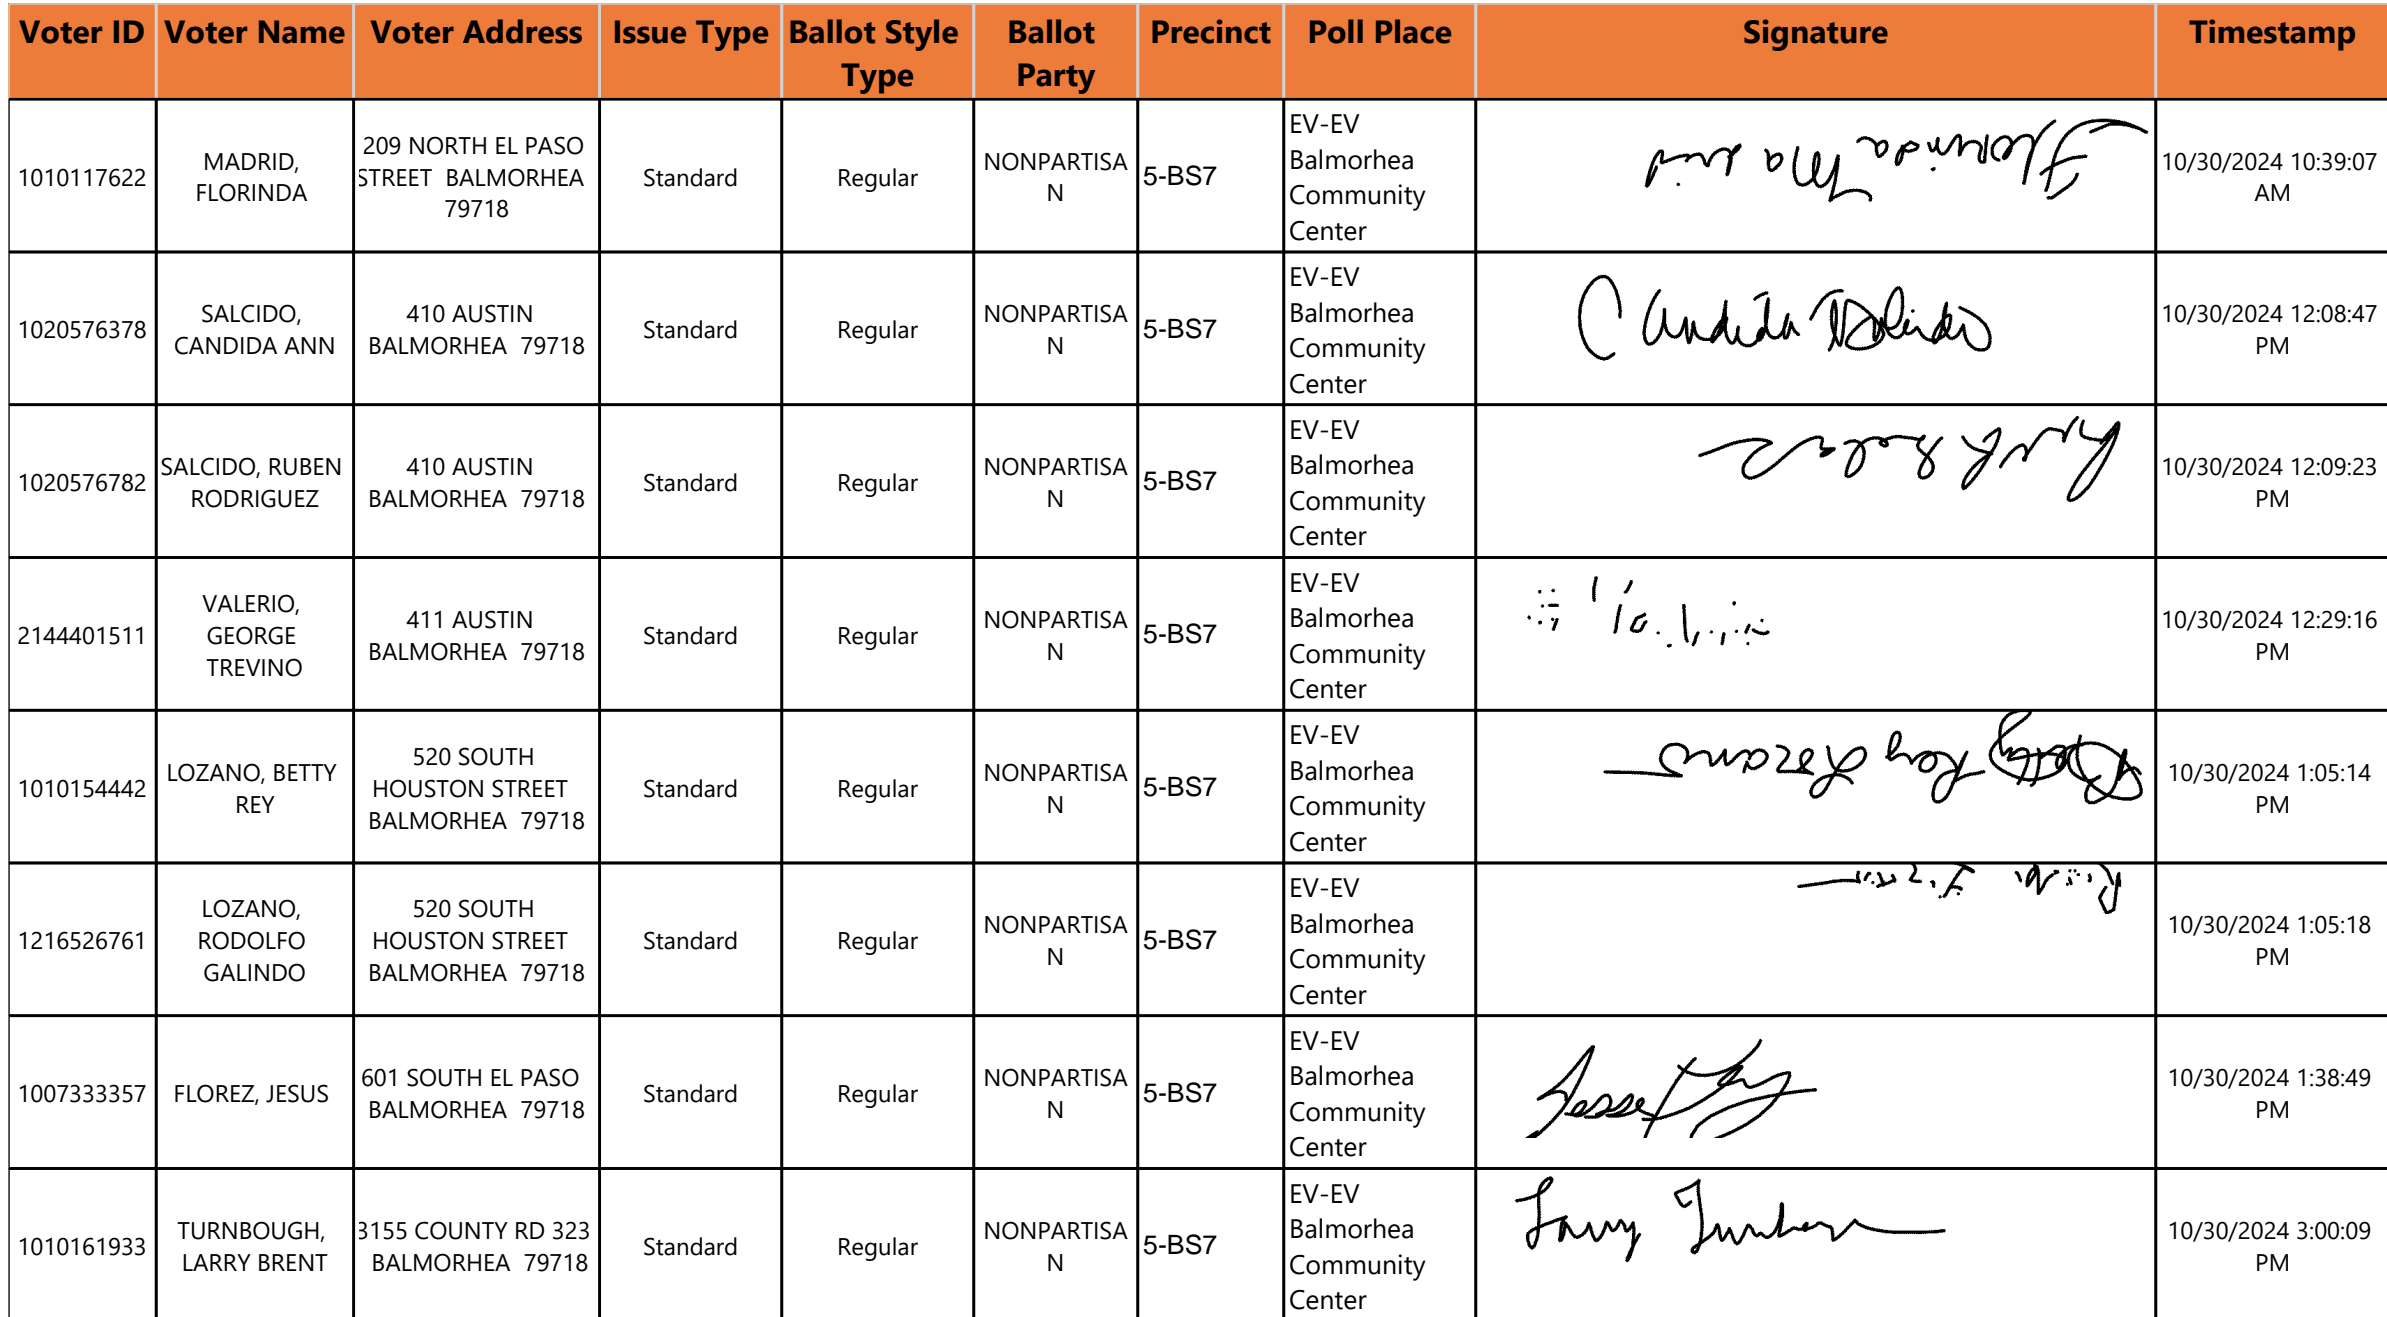 Voter ID Voter Name Voter Address Issue Type Ballot Style Type Ballot Party Precinct Poll Place Signature Timestamp
1010117622 MADRID, FLORINDA 209 NORTH EL PASO STREET BALMORHEA 79718 Standard Regular NONPARTISAN 5-BS7 EV-EV Balmorhea Community Center Florinda Madrid 10/30/2024 10:39:07 AM
1020576378 SALCIDO, CANDIDA ANN 410 AUSTIN BALMORHEA 79718 Standard Regular NONPARTISAN 5-BS7 EV-EV Balmorhea Community Center Candida Salcido 10/30/2024 12:08:47 PM
1020576782 SALCIDO, RUBEN RODRIGUEZ 410 AUSTIN BALMORHEA 79718 Standard Regular NONPARTISAN 5-BS7 EV-EV Balmorhea Community Center 10/30/2024 12:09:23 PM
2144401511 VALERIO, GEORGE TREVINO 411 AUSTIN BALMORHEA 79718 Standard Regular NONPARTISAN 5-BS7 EV-EV Balmorhea Community Center 10/30/2024 12:29:16 PM
1010154442 LOZANO, BETTY REY 520 SOUTH HOUSTON STREET BALMORHEA 79718 Standard Regular NONPARTISAN 5-BS7 EV-EV Balmorhea Community Center Betty Rey Lozano 10/30/2024 1:05:14 PM
1216526761 LOZANO, RODOLFO GALINDO 520 SOUTH HOUSTON STREET BALMORHEA 79718 Standard Regular NONPARTISAN 5-BS7 EV-EV Balmorhea Community Center 10/30/2024 1:05:18 PM
1007333357 FLOREZ, JESUS 601 SOUTH EL PASO BALMORHEA 79718 Standard Regular NONPARTISAN 5-BS7 EV-EV Balmorhea Community Center Jesse 10/30/2024 1:38:49 PM
1010161933 TURNBOUGH, LARRY BRENT 3155 COUNTY RD 323 BALMORHEA 79718 Standard Regular NONPARTISAN 5-BS7 EV-EV Balmorhea Community Center Larry 10/30/2024 3:00:09 PM